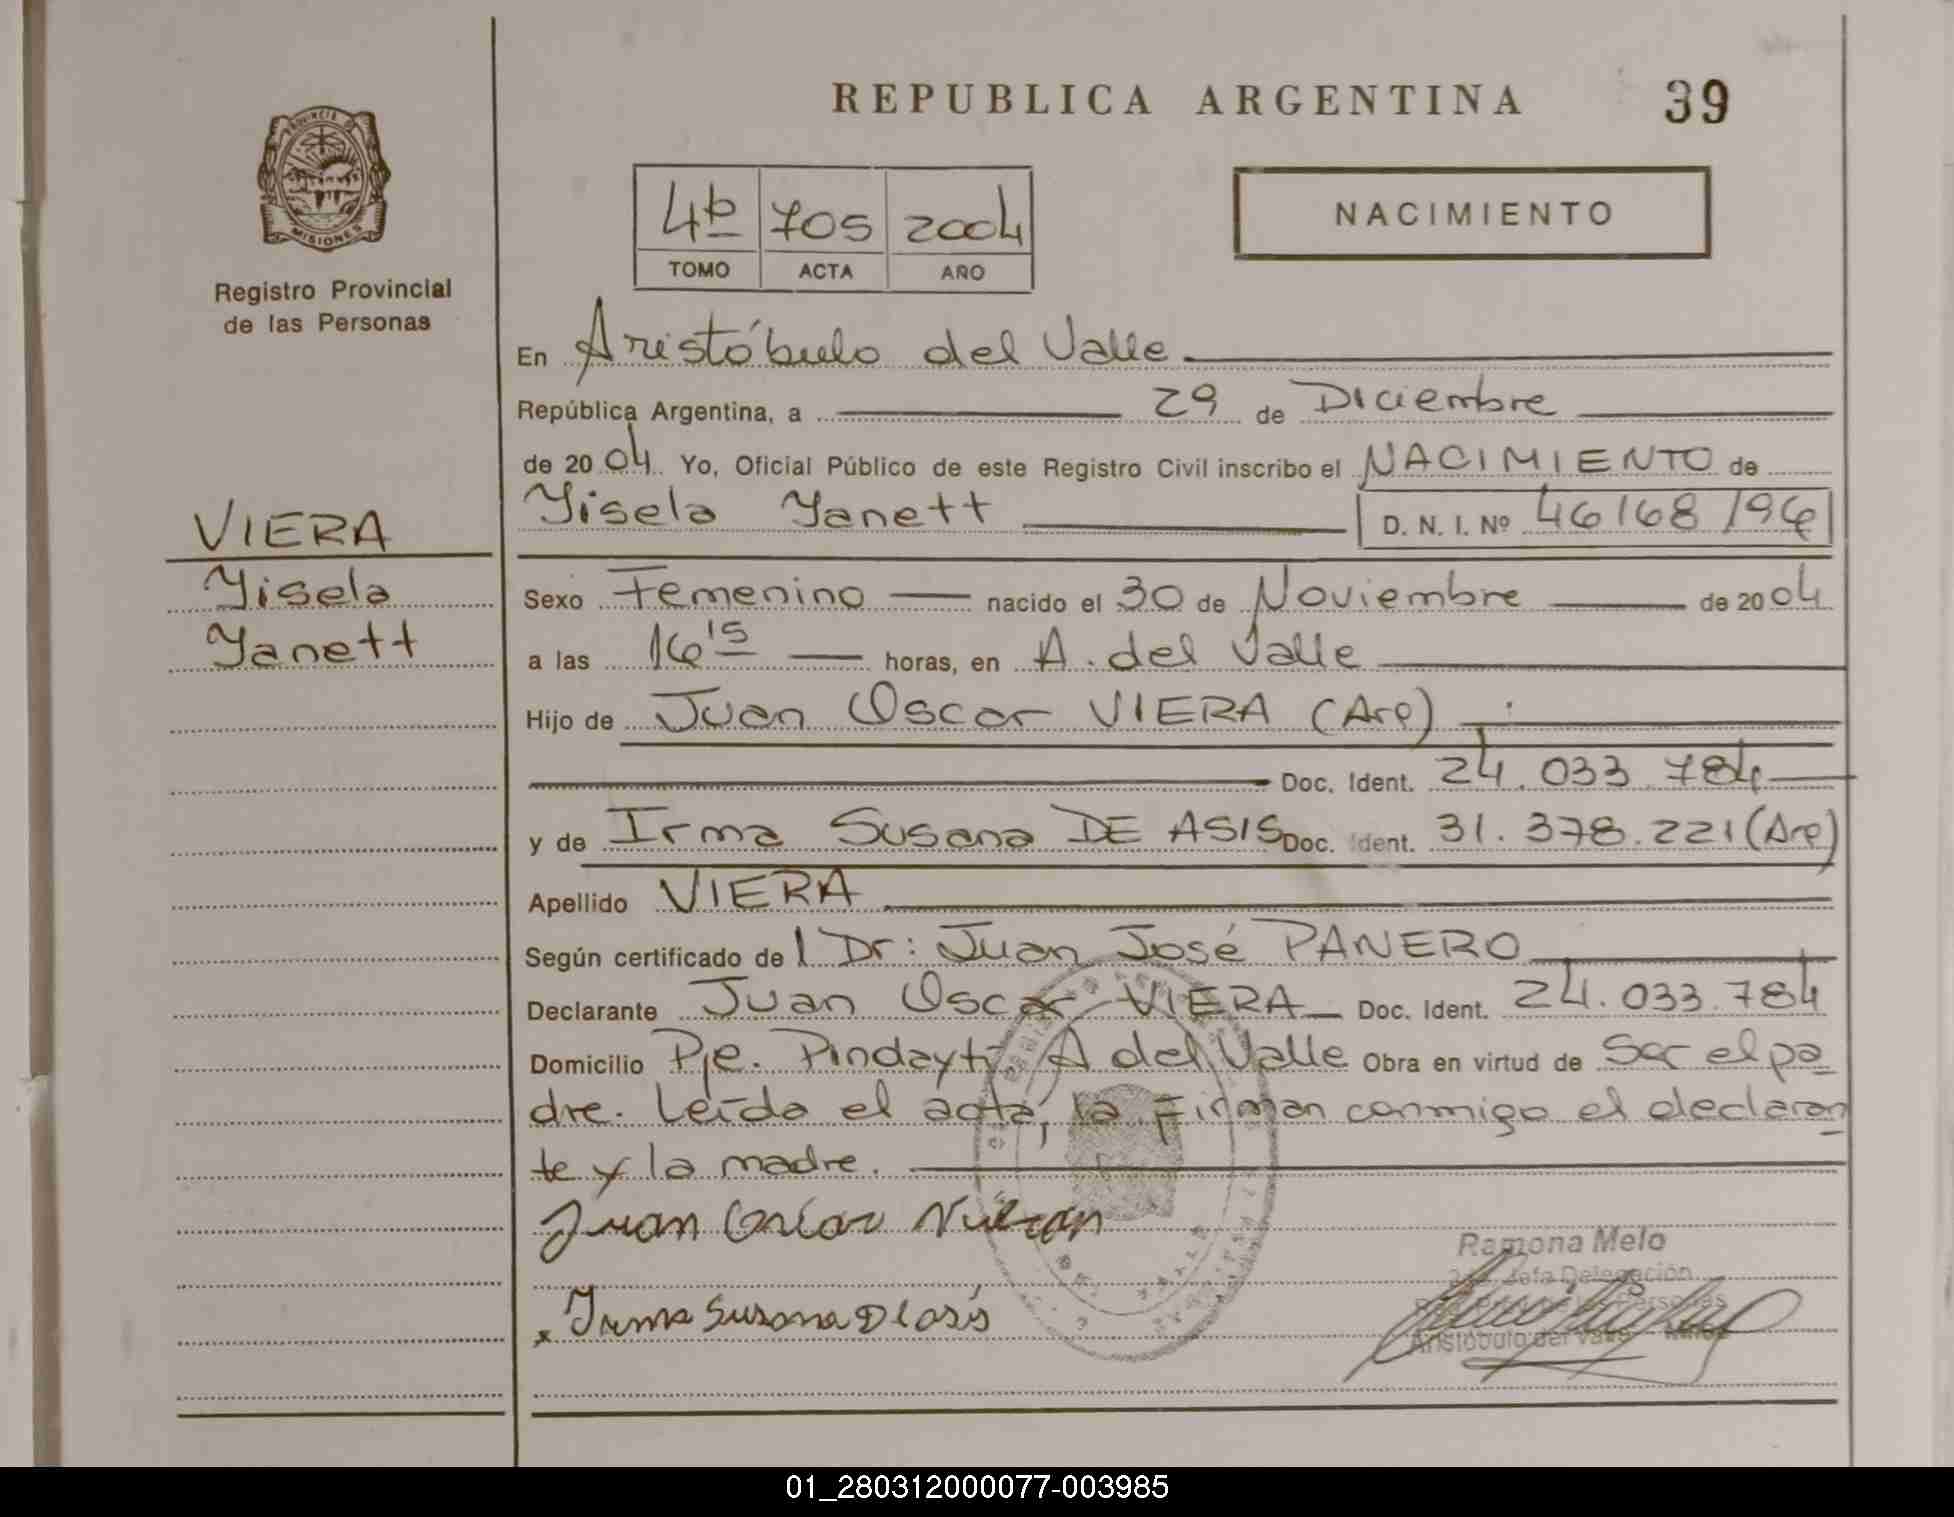 REPUBLICA ARGENTINA
39
PROVINCIA DE
MISIONES
Registro Provincial
de las Personas
4º 705 2004
TOMO ACTA AÑO
NACIMIENTO
En Aristóbulo del Valle
República Argentina, a 29 de Diciembre
de 20 04 Yo, Oficial Público de este Registro Civil inscribo el NACIMIENTO de
Yisela Yanett D. N. I. Nº 46168196
VIERA
Yisela
Yanett
Sexo Femenino nacido el 30 de Noviembre de 20 04
a las 16 15 horas, en A. del Valle
Hijo de Juan Oscar VIERA (Arg)
Doc. Ident. 24.033.784
y de Irma Susana DE ASIS Doc. Ident. 31.378.221 (Arg)
Apellido VIERA
Según certificado de l Dr: Juan José PANERO
Declarante Juan Oscar VIERA Doc. Ident. 24.033.784
Domicilio Pje. Pindaytí A del Valle Obra en virtud de Ser el pa
dre. Leída el acta, la Firman conmigo el declaran
te y la madre.
Juan
x Irma Susana D asis
Ramona Melo
Jefa Delegación
Personas
Aristóbulo del Valle
01_280312000077-003985